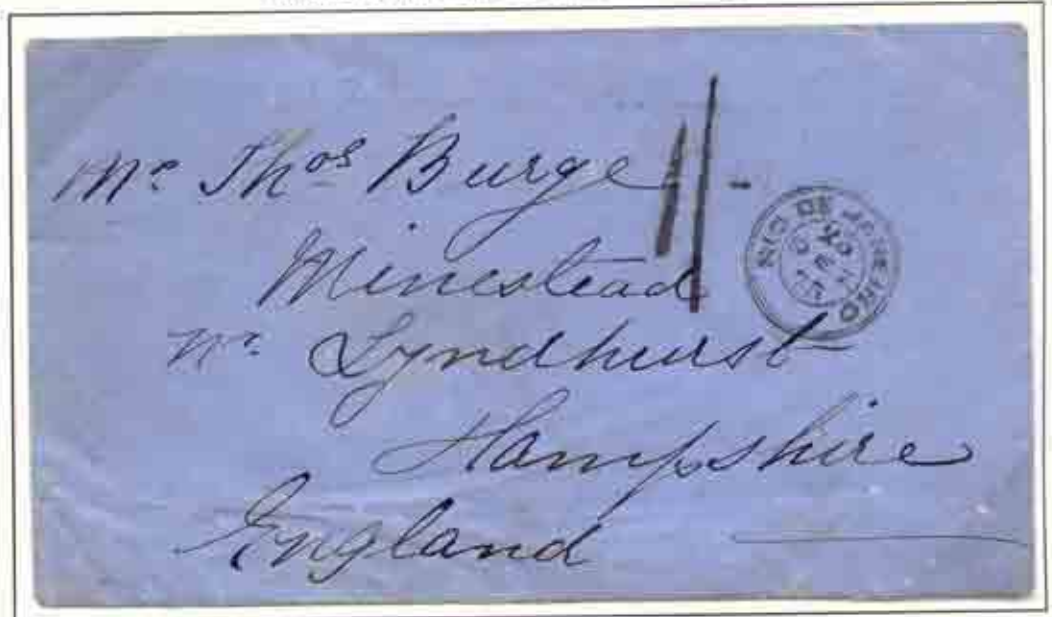 Mr Thos Burge
Minestead
nr Lyndhurst
Hampshire
England
1/-
RIO DE JANEIRO